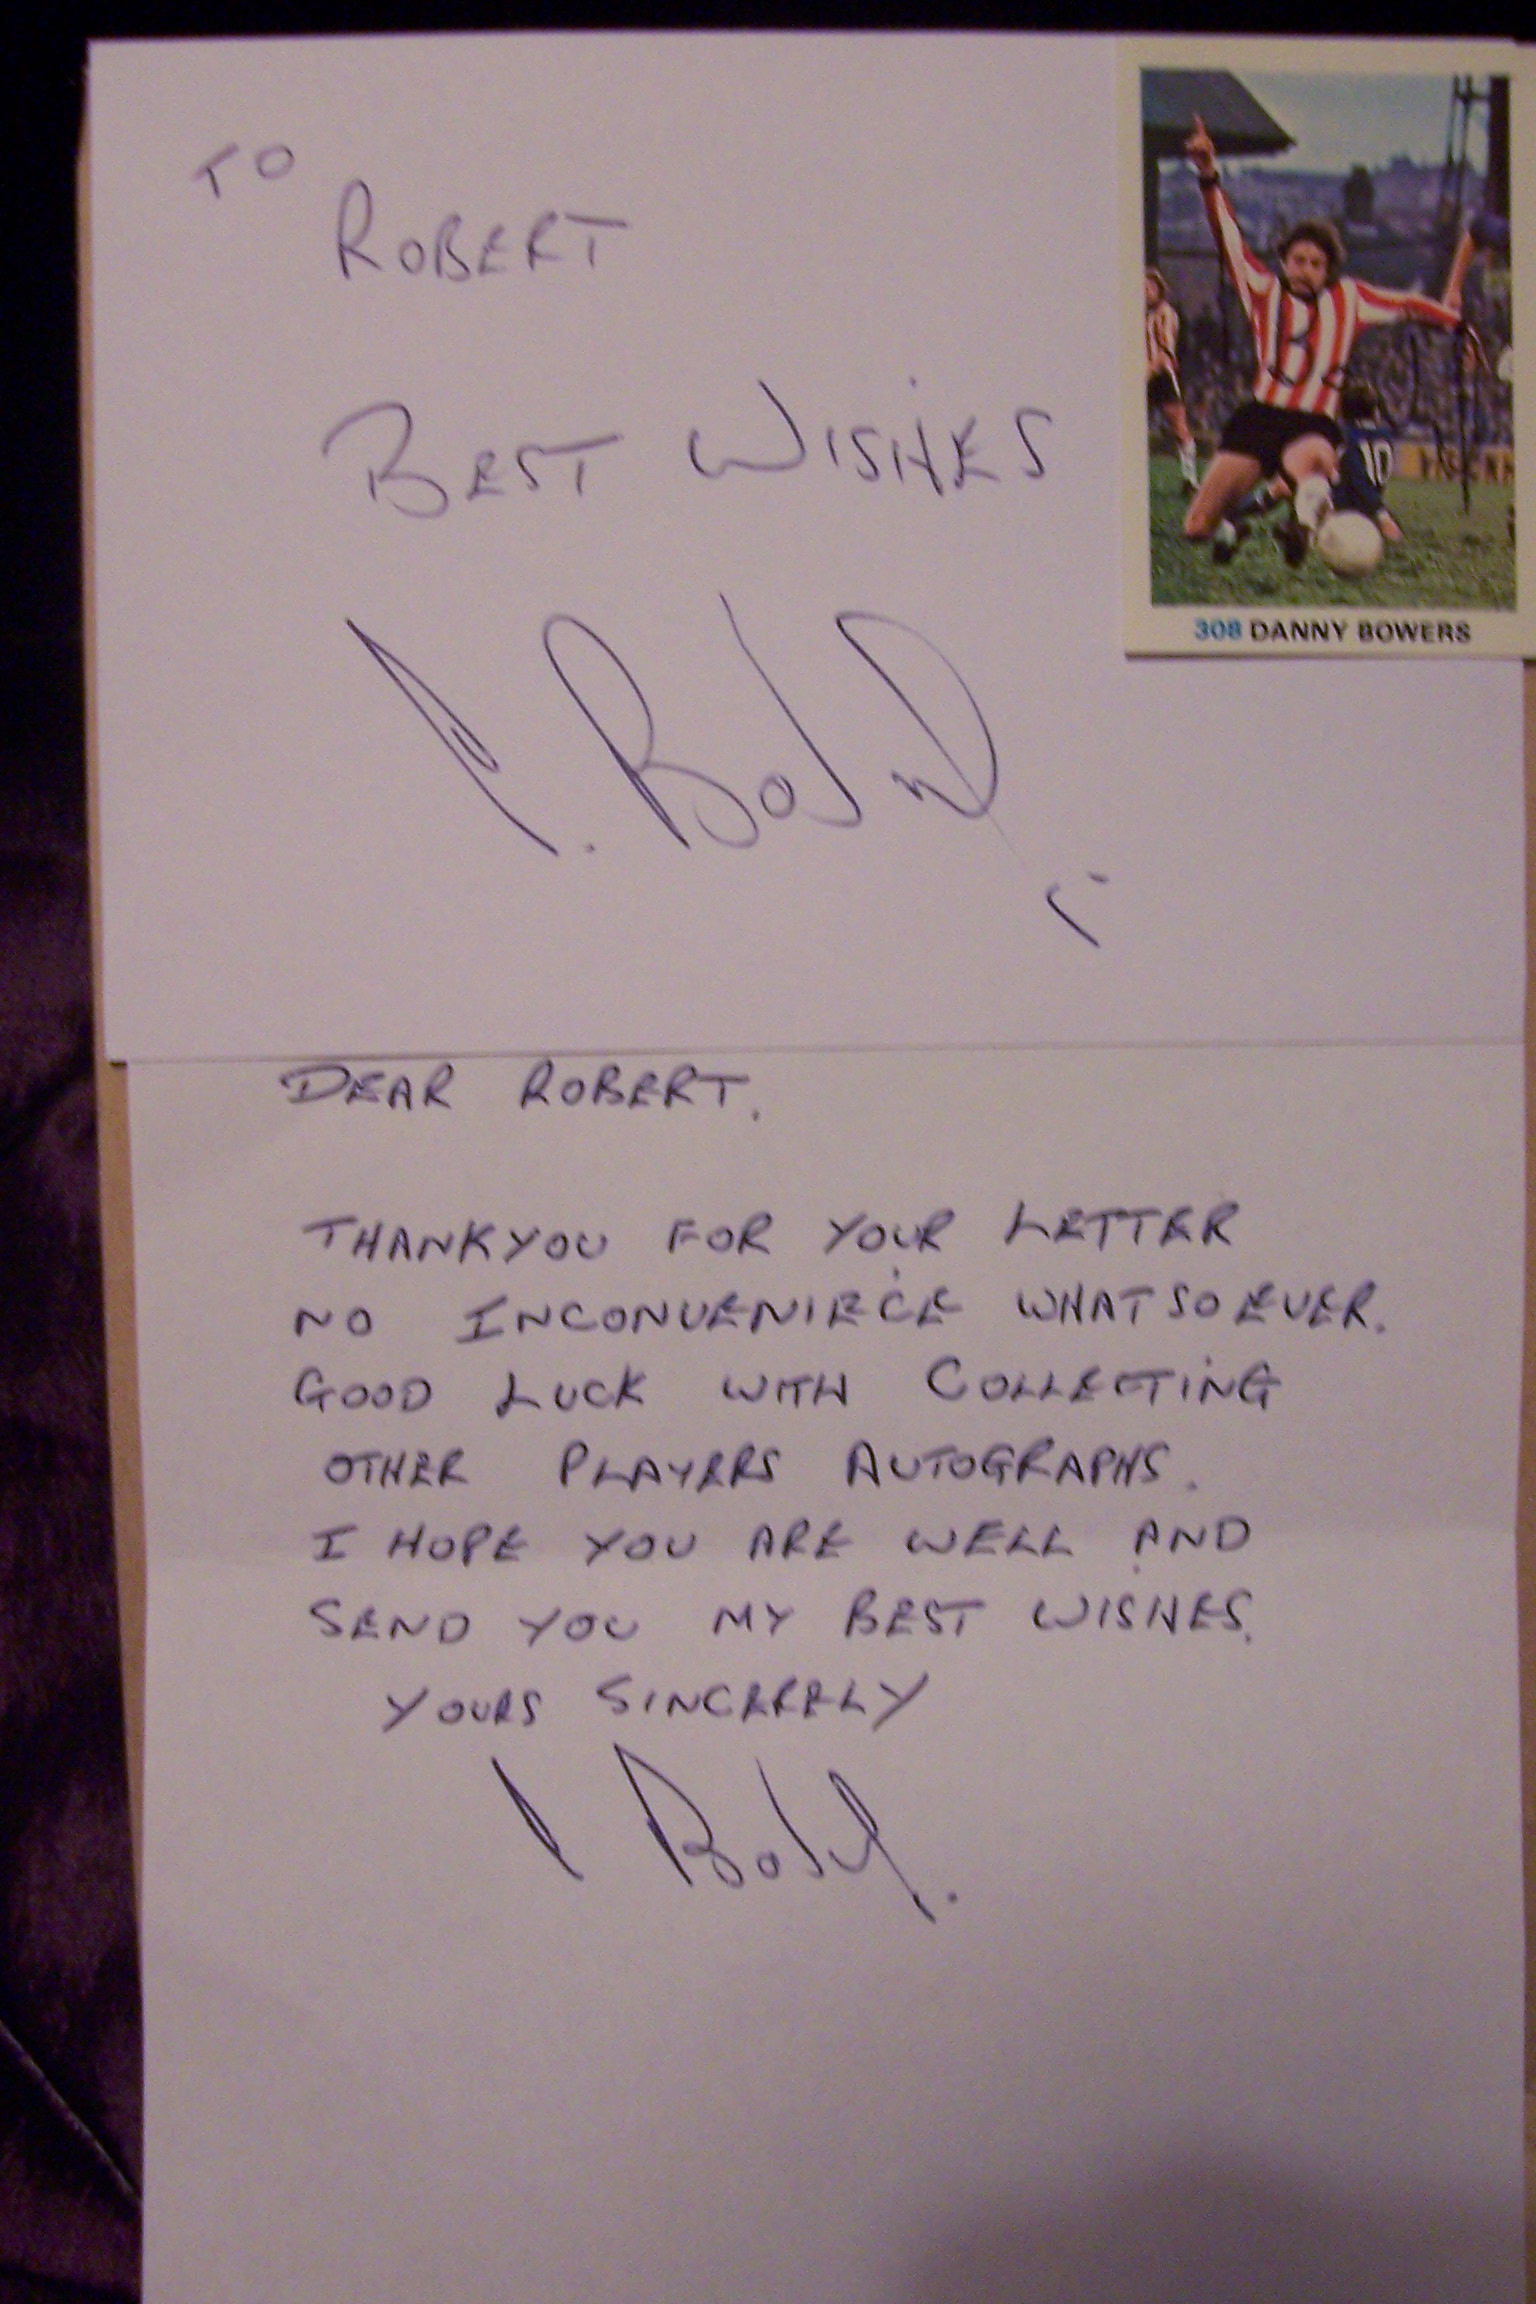 TO
ROBERT
BEST WISHES
308 DANNY BOWERS
10
DEAR ROBERT.
THANKYOU FOR YOUR LETTER
NO INCONVENIECE WHATSOEVER.
GOOD LUCK WITH COLLECTING
OTHER PLAYERS AUTOGRAPHS.
I HOPE YOU ARE WELL AND
SEND YOU MY BEST WISHES.
YOURS SINCERELY